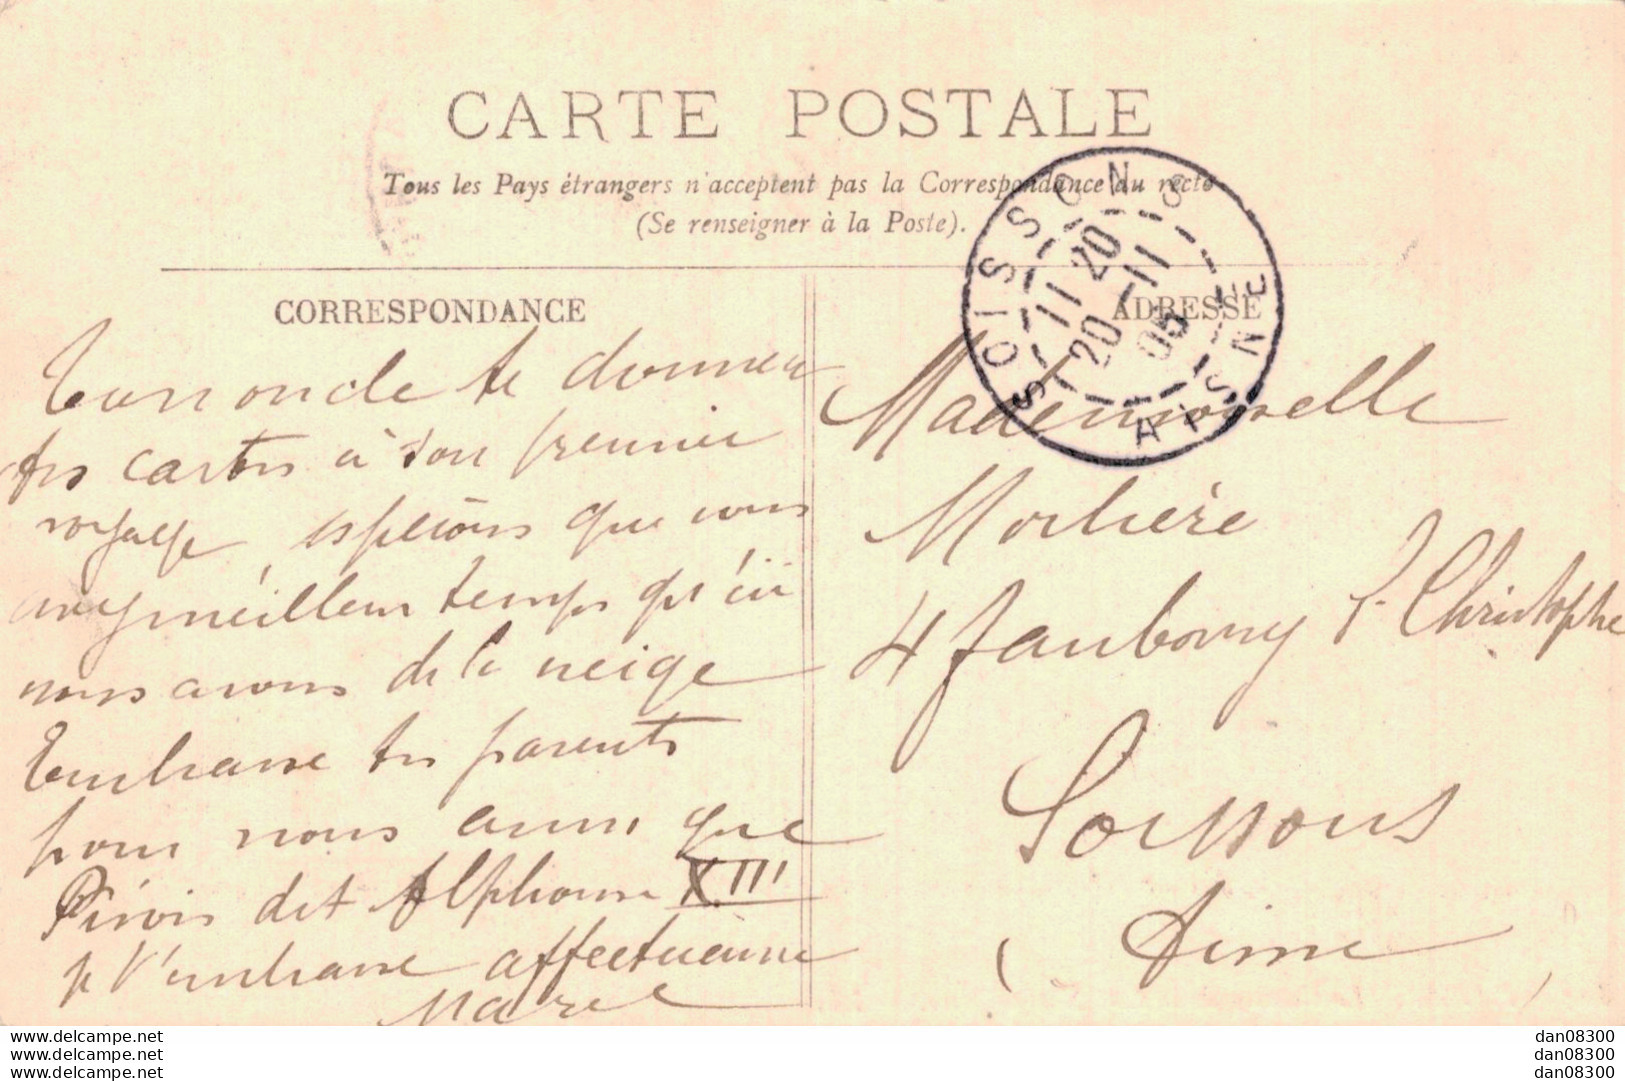 CARTE POSTALE
Tous les Pays étrangers n'acceptent pas la Correspondance au recto
(Se renseigner à la Poste).
CORRESPONDANCE
oncle te
tes cartes à son premier
voyage, espérons que vous
meilleur temps qu'ici
nous avons de la neige
Embrasse tes parents
pour nous ainsi que
dit Alphonse XIII
je t'embrasse affectueuseme
Marcel
ADRESSE
SOISSONS
AISNE
11 20
20 -11
05
Mademoiselle
Morlière
4 faubourg St Christophe
Soissons
(Aisne)
www.delcampe.net
www.delcampe.net
www.delcampe.net
dan08300
dan08300
dan08300